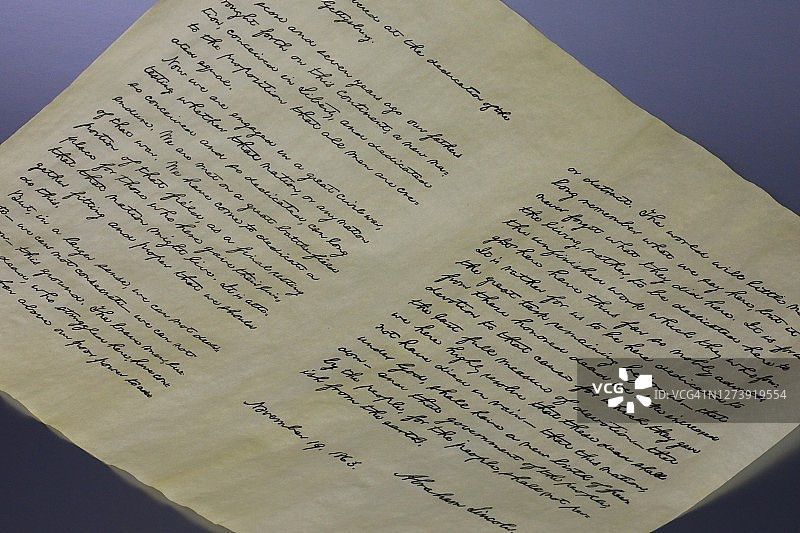 vered at the dedication of the
Gettysburg.
score and seven years ago our fathers
rought forth on this continent, a new na-
tion, conceived in Liberty, and dedicated
to the proposition that all men are cre-
ated equal.
Now we are engaged in a great civil war,
testing whether that nation, or any nation
so conceived and so dedicated, can long
endure. We are met on a great battle field
of that war. We have come to dedicate a
portion of that field, as a final resting
place for those who here gave their lives
that that nation might live. It is alto-
gether fitting and proper that we should
do this.
But, in a larger sense, we can not dedi-
we can not consecrate we can not
this ground. The brave men liv
dead who struggled here have con
far above our poor power to add
or detract. The world will little n
long remember what we say here, but it
never forget what they did here. It is for
the living, rather, to be dedicated here to
the unfinished work which they who fou
ght here have thus far so nobly adva
It is rather for us to be here dedicated to
the great task remaining before us that
from these honored dead we take increased
devotion to that cause for which they gave
the last full measure of devotion that
we here highly resolve that these dead shall
not have died in vain that this nation,
under God, shall have a new birth of free
dom and that government of the people,
by the people, for the people, shall not per
ish from the earth.
November 19, 1863.
Abraham Lincoln.
VCG ID:VCG41N1273919554